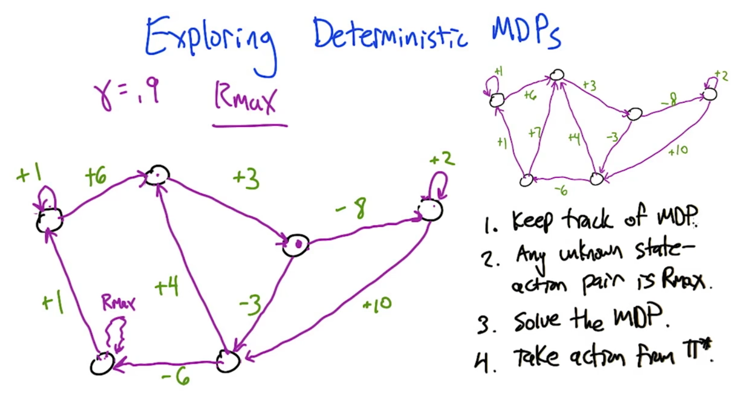 Exploring Deterministic MDPs
γ=.9 Rmax
+1
+6
+3
-8
+2
+1
Rmax
+4
-3
+10
-6
+1
+6
+3
-8
+2
+1
+7
+4
-3
+10
-6
1. Keep track of MDP.
2. Any unknown state-
action pair is Rmax.
3. Solve the MDP.
4. Take action from π*.